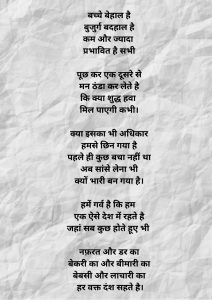 बच्चे बेहाल है
बुजुर्ग बदहाल है
कम और ज्यादा
प्रभावित है सभी
पूछ कर एक दूसरे से
मन ठंडा कर लेते है
कि क्या शुद्ध हवा
मिल पाएगी कभी।
क्या इसका भी अधिकार
हमसे छिन गया है
पहले ही कुछ बचा नहीं था
अब सांसे लेना भी
क्यों भारी बन गया है।
हमें गर्व है कि हम
एक ऐसे देश में रहते है
जहां सब कुछ होते हुए भी
नफ़रत और डर का
बेकरी का और बीमारी का
बेबसी और लाचारी का
हर वक्त दंश सहते है।